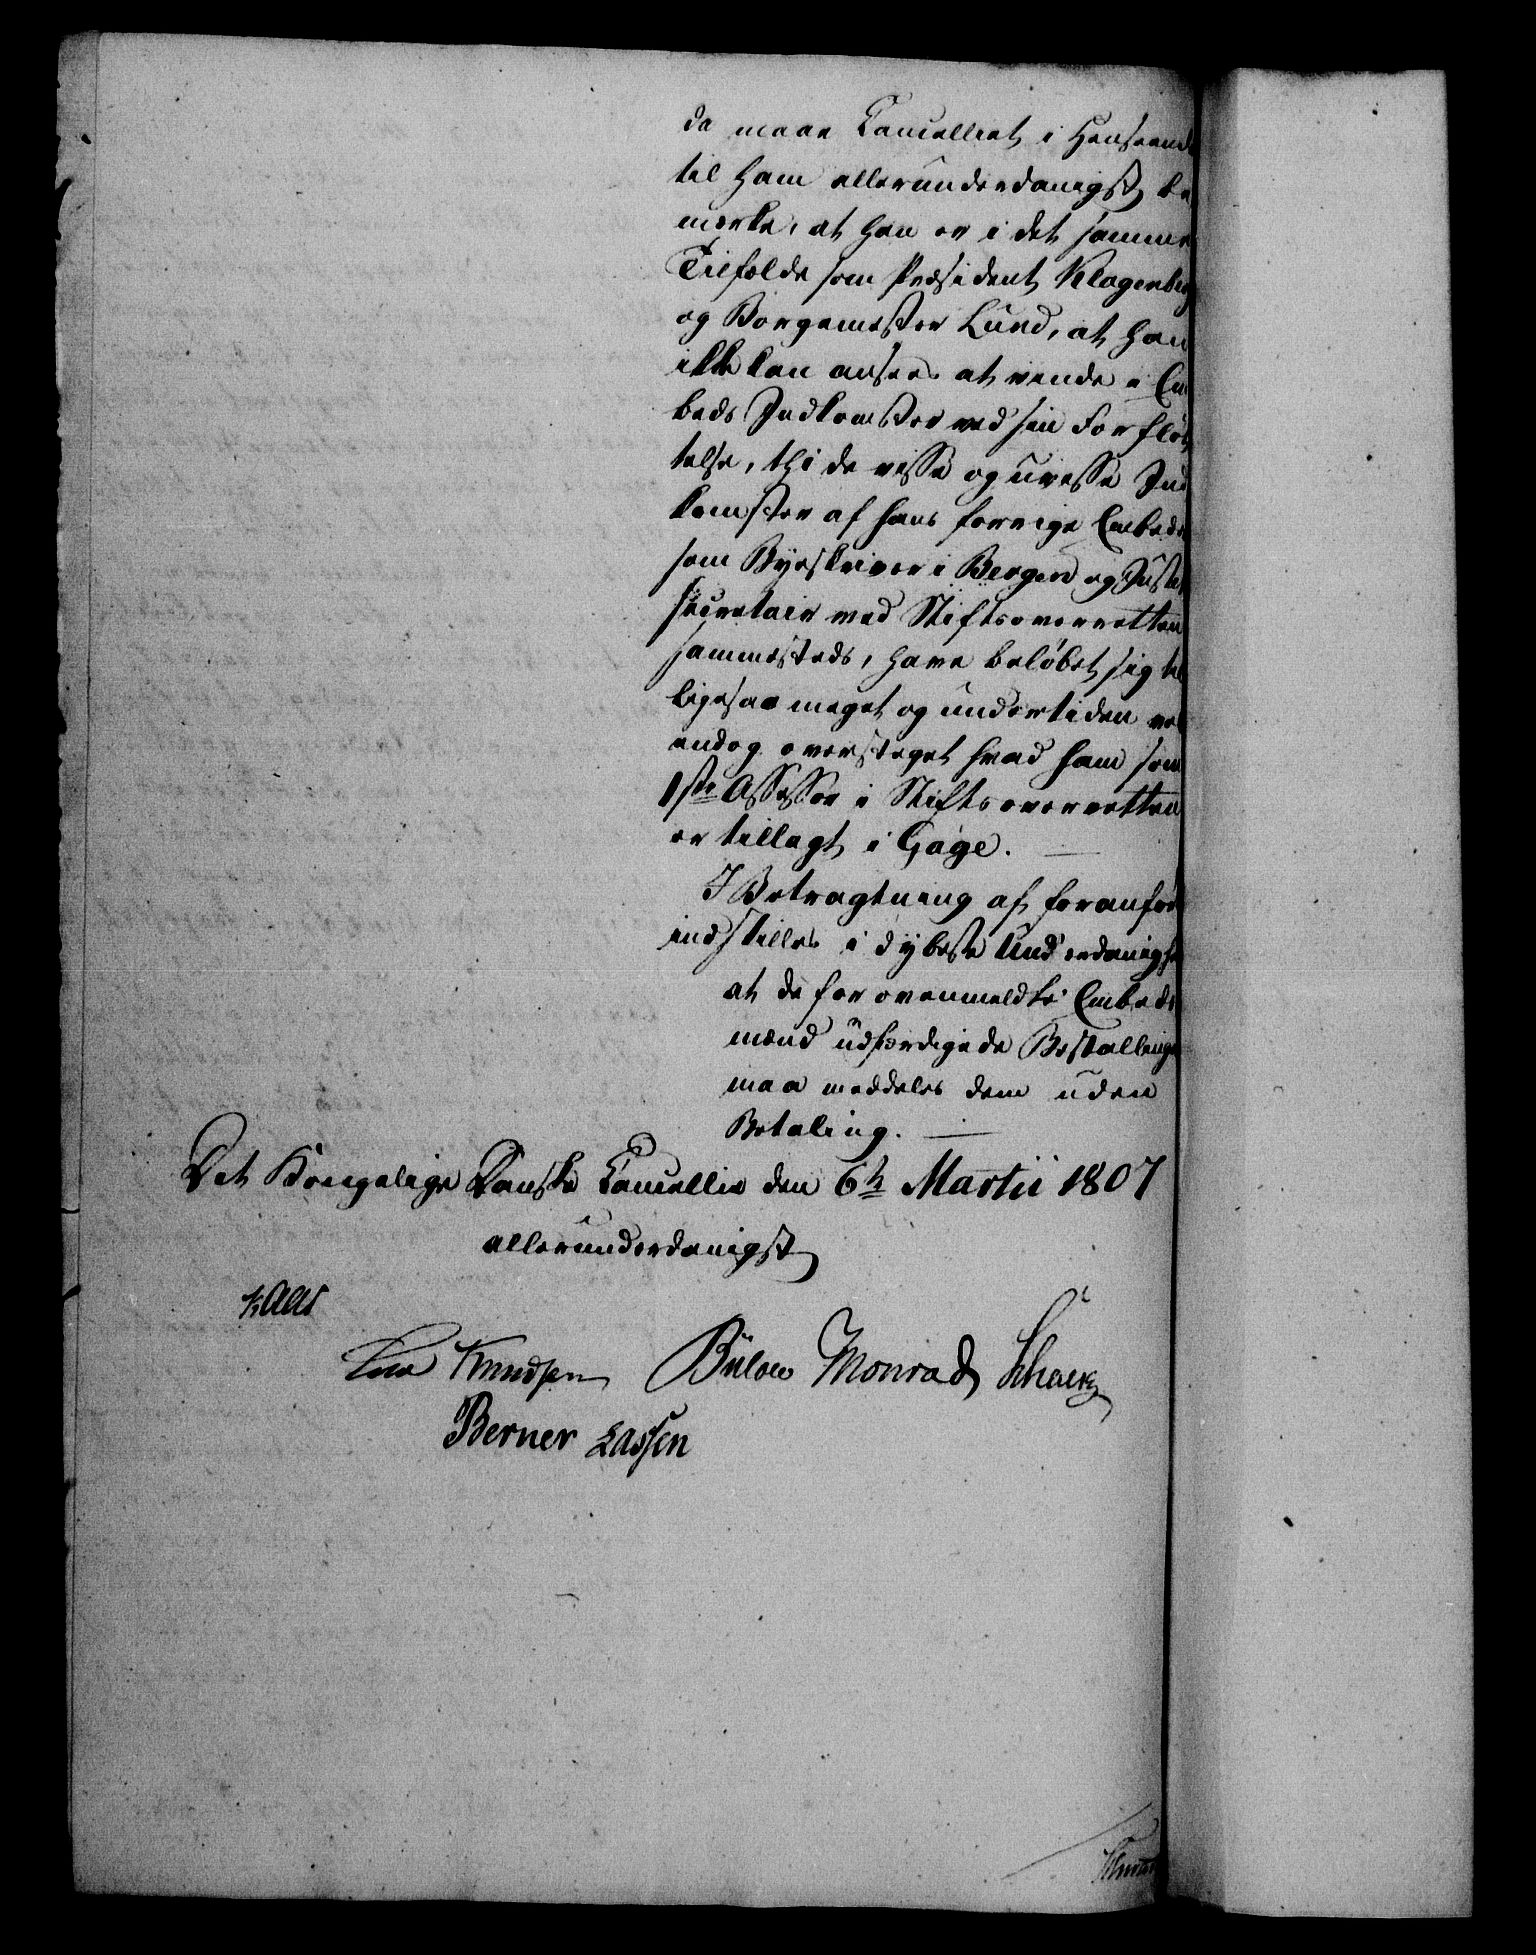 da maae Cancelliet i Henseende
til ham allerunderdanigst be
mærke, at han er i det samme
Tilfælde som Præsident Klagenberg
og Borgemester Lund, at han
ikke kan ansees at vinde i Em
beds Indkomster ved sin Forflyt
telse, thi de visse og uvisse Ind
komster af hans forrige Embede
som Byeskriver i Bergen og Justits
secretair ved Stiftsoverretten
sammesteds, have beløbet sig til
ligesaa meget og undertiden vel
endog oversteget hvad ham som
1ste Assessor i Stiftsoverretten
er tillagt i Gage.
I Betragtning af foranførte
indstilles i dybeste Underdanighed
at de for ovenmeldte Embeds
mænd udfærdigede Bestallinger
maa meddeles dem uden
Betaling.
Det Kongelige Danske Cancellie den 6te Martii 1807
allerunderdanigst
Kaas
Knudsen Bülow Monrad Schack
Berner Lassen